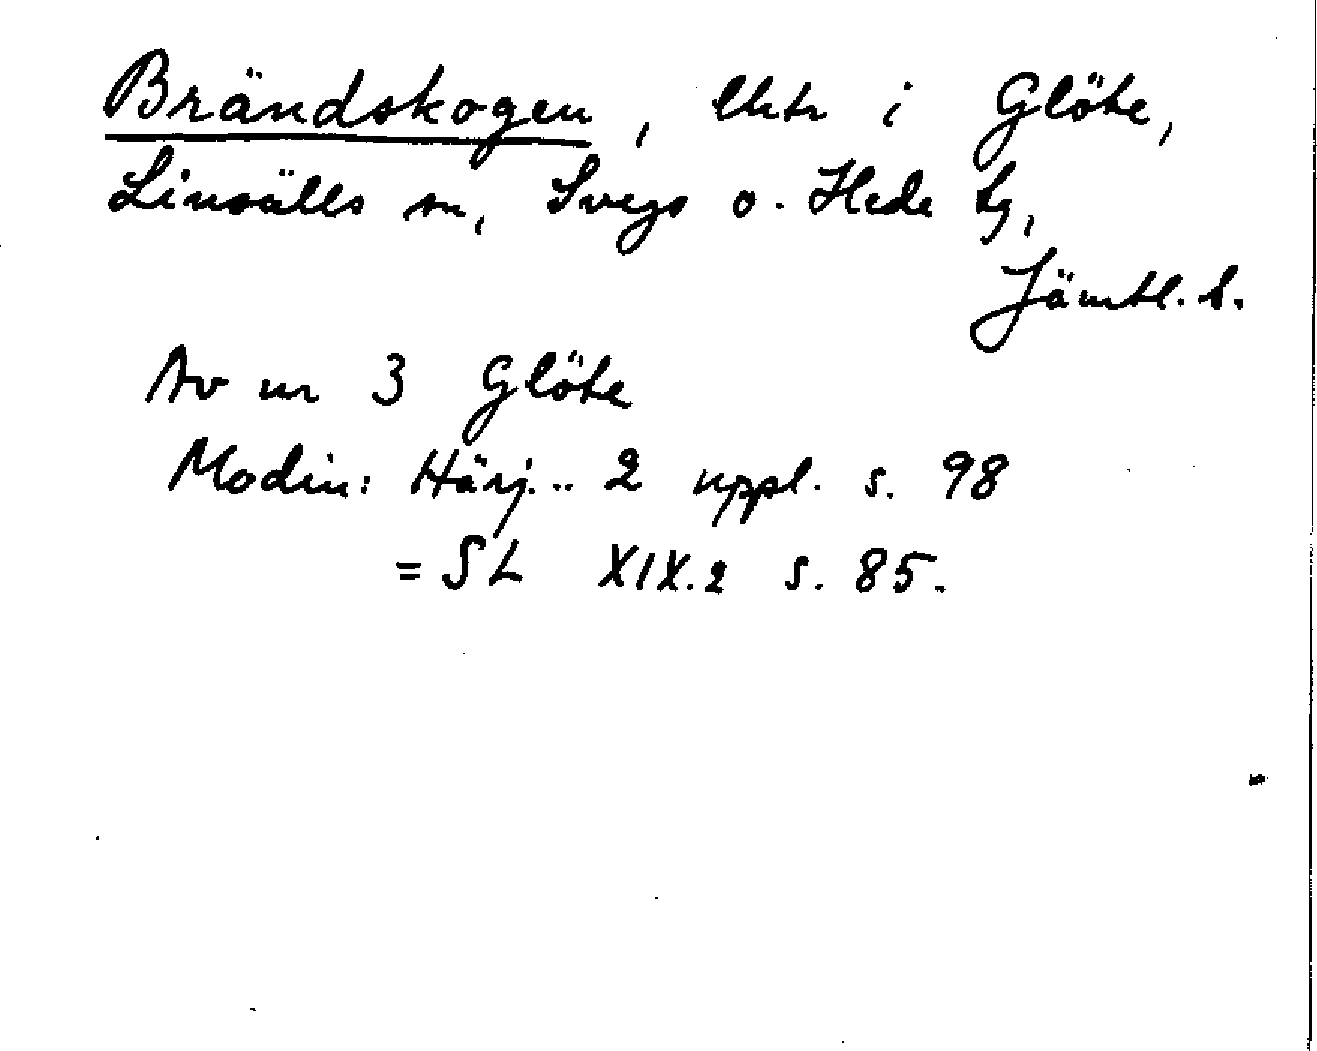 Brändskogen, lht i Glöte,
Linsälls sn, Svegs o. Hede tg,
Jämtl. l.
Av nr 3 Glöte
Modin: Härj... 2 uppl. s. 98
= SL XIX.2 s. 85.